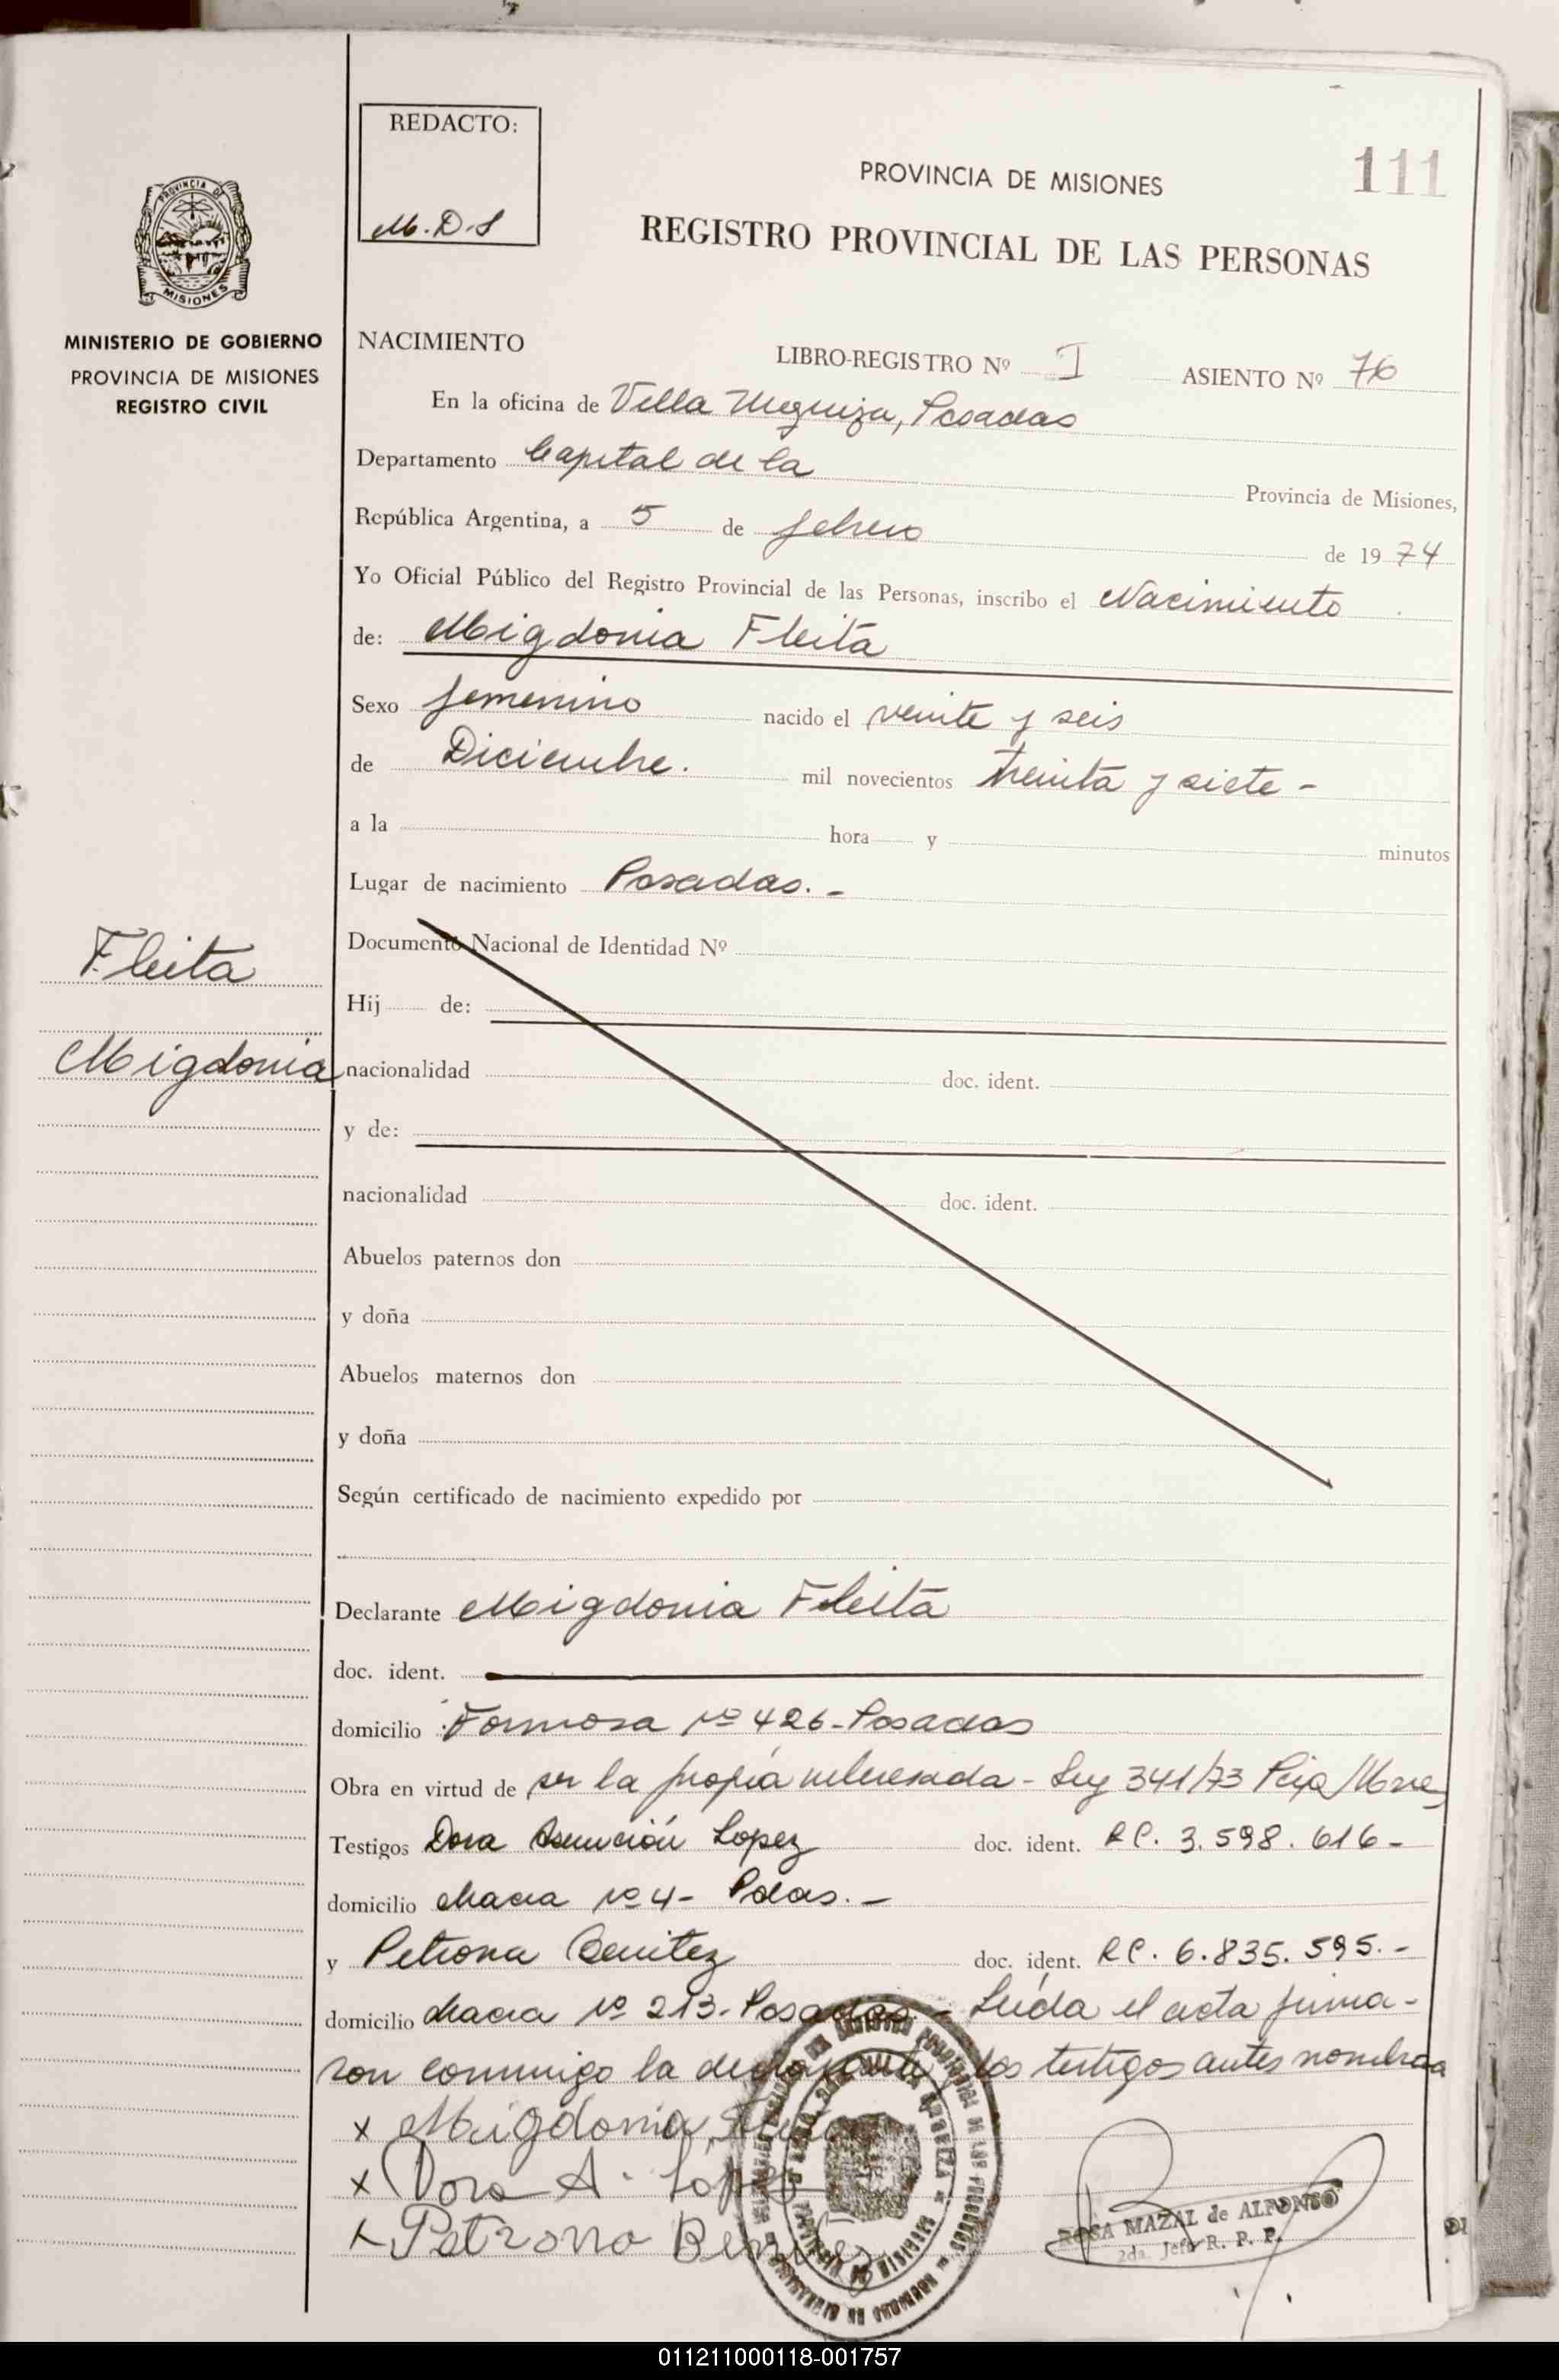 REDACTO:
M.D.S
PROVINCIA DE MISIONES
111
REGISTRO PROVINCIAL DE LAS PERSONAS
PROVINCIA DE
MISIONES
MINISTERIO DE GOBIERNO
PROVINCIA DE MISIONES
REGISTRO CIVIL
NACIMIENTO
LIBRO-REGISTRO Nº I ASIENTO Nº 76
En la oficina de Villa Urquiza, Posadas
Departamento Capital de la Provincia de Misiones,
República Argentina, a 5 de febrero de 1974
Yo Oficial Público del Registro Provincial de las Personas, inscribo el Nacimiento
de: Migdonia Fleita
Sexo femenino nacido el veinte y seis
de Diciembre. mil novecientos treinta y siete -
a la hora y minutos
Lugar de nacimiento Posadas. -
Documento Nacional de Identidad Nº
Fleita
Hij de:
Migdonia
nacionalidad doc. ident.
y de:
nacionalidad doc. ident.
Abuelos paternos don
y doña
Abuelos maternos don
y doña
Según certificado de nacimiento expedido por
Declarante Migdonia Fleita
doc. ident.
domicilio Formosa Nº 426 - Posadas
Obra en virtud de ser la propia interesada - Ley 341/73 Pcia Mnes
Testigos Dora Asunción Lopez doc. ident. RC. 3.598.616 -
domicilio chacra Nº 4 - Pdas. -
y Petrona Benitez doc. ident. RC. 6.835.595. -
domicilio chacra Nº 213 - Posadas - Leída el acta firma-
ron conmigo la declarante y los testigos antes nombra
x Migdonia
x Dora A. López
x Petrona Benitez
ROSA MAZAL de ALFONSO
2da. Jefe R. P. P.
011211000118-001757